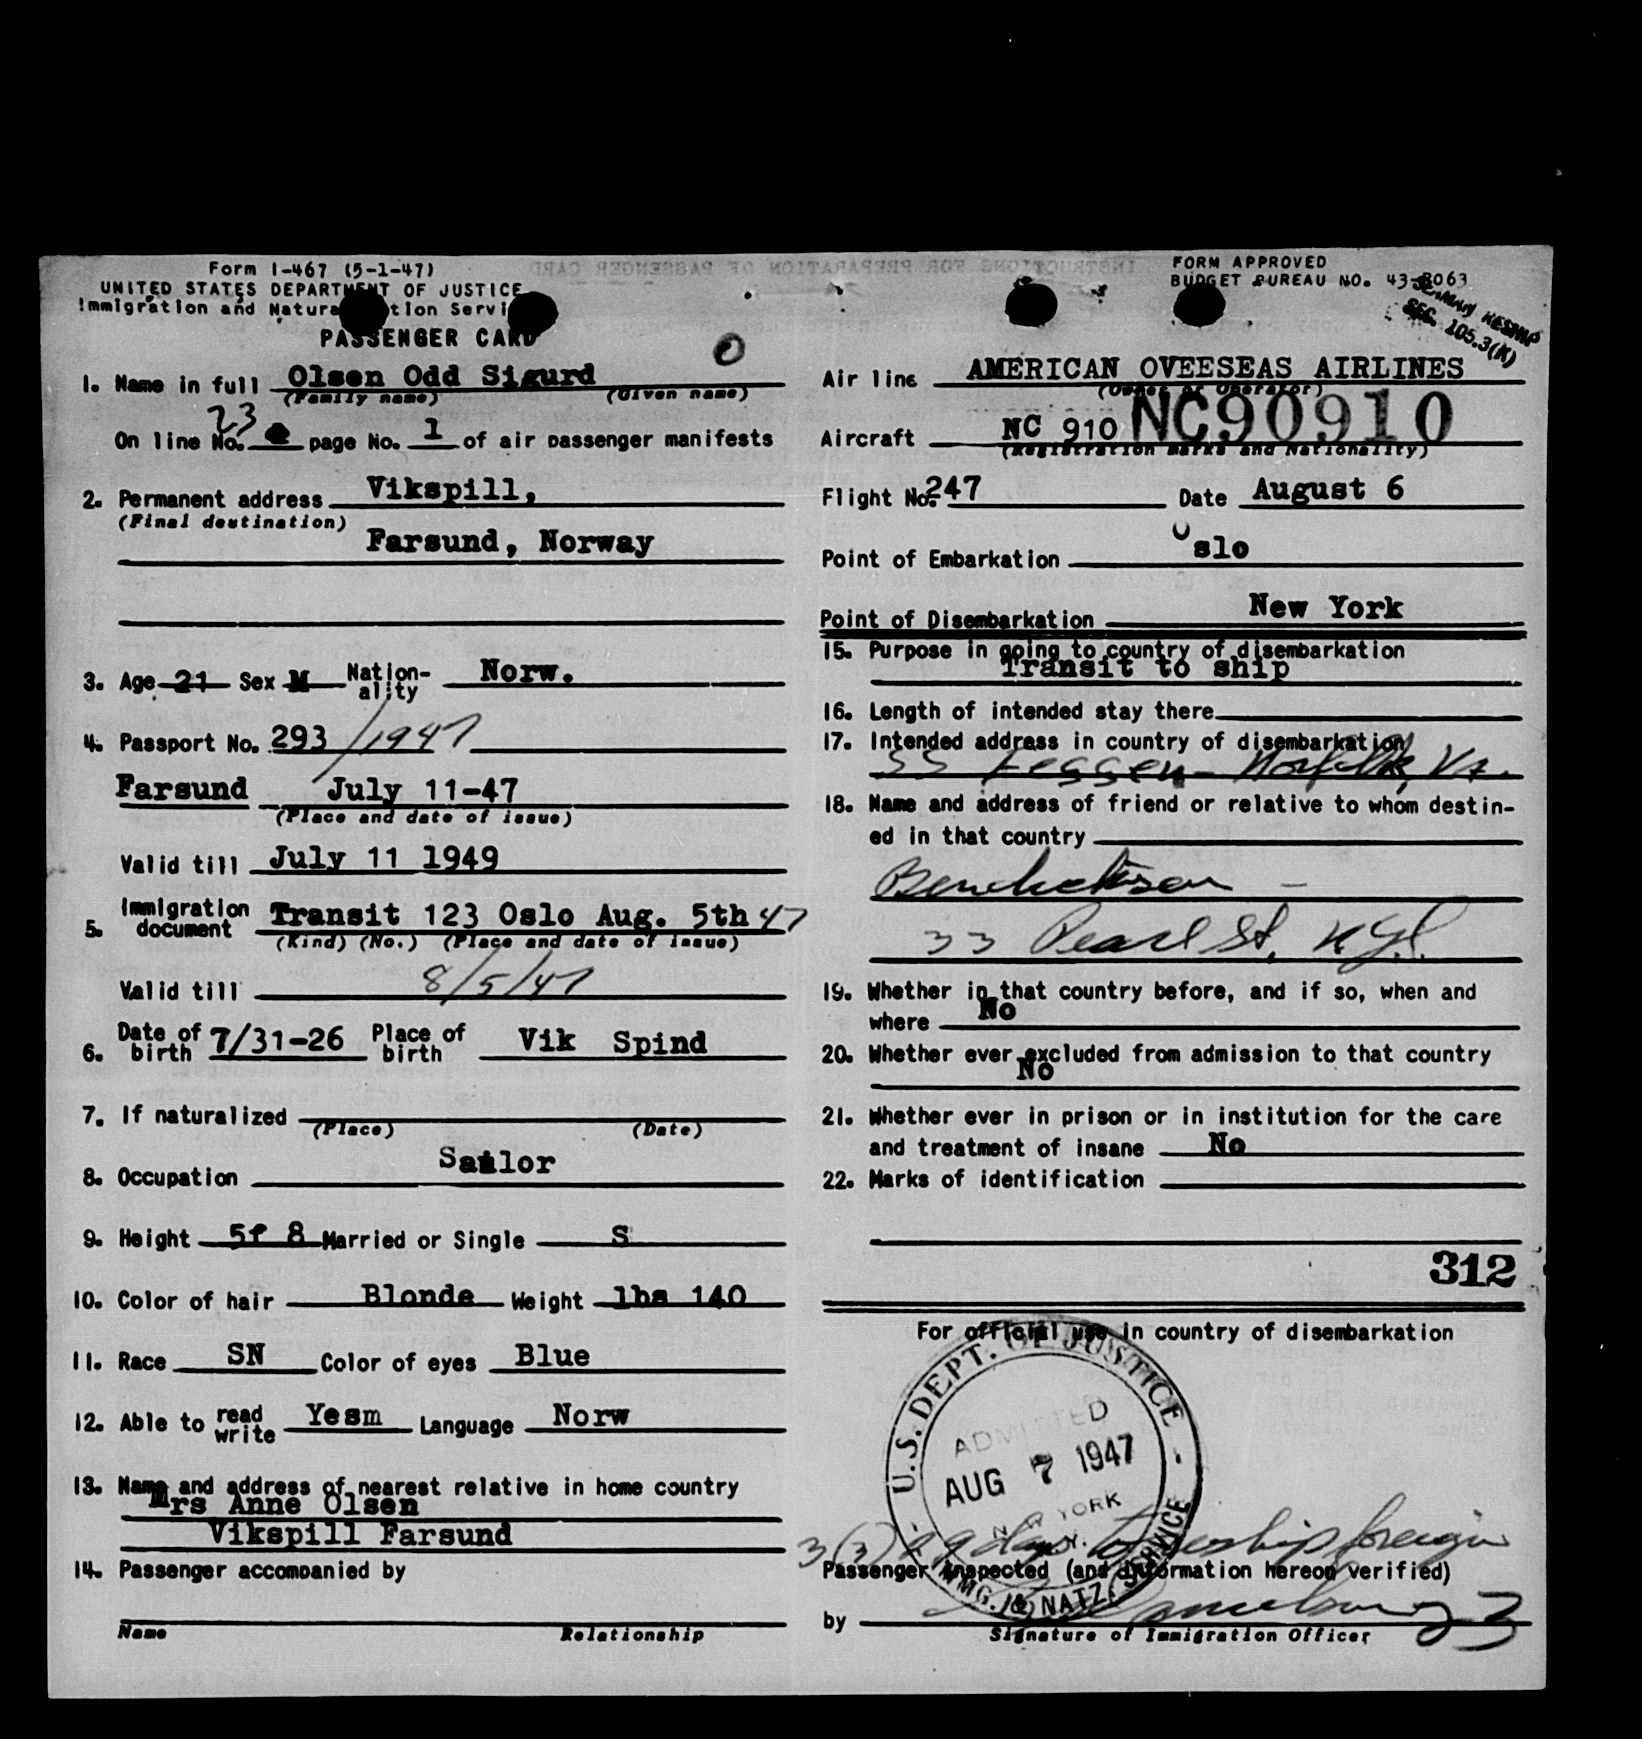 Form I-467 (5-1-47)
UNITED STATES DEPARTMENT OF JUSTICE
Immigration and Natura tion Servi
PASSENGER CARD
O
1. Name in full Olsen Odd Sigurd
(Family name) (Given name)
23
On line No. page No. 1 of air passenger manifests
2. Permanent address Vikspill,
(Final destination)
Farsund, Norway
3. Age 21 Sex M Nation-ality Norw.
4. Passport No. 293/1947
Farsund July 11-47
(Place and date of issue)
Valid till July 11 1949
5. Immigration document Transit 123 Oslo Aug. 5th 47
(Kind) (No.) (Place and date of issue)
Valid till 8/5/47
6. Date of birth 7/31-26 Place of birth Vik Spind
7. If naturalized
(Place) (Date)
8. Occupation Sailor
9. Height 5f 8 Married or Single S
10. Color of hair Blonde Weight lbs 140
11. Race SN Color of eyes Blue
12. Able to read write Yesm Language Norw
13. Name and address of nearest relative in home country
Mrs Anne Olsen
Vikspill Farsund
14. Passenger accompanied by
Name Relationship
FORM APPROVED
BUDGET BUREAU NO. 43-R063
SEC. 105.3(K)
Air line AMERICAN OVEESEAS AIRLINES
(Owner or Operator)
Aircraft NC 910 NC90910
(Registration marks and Nationality)
Flight No. 247 Date August 6
Point of Embarkation Oslo
Point of Disembarkation New York
15. Purpose in going to country of disembarkation
Transit to ship
16. Length of intended stay there
17. Intended address in country of disembarkation
SS Feggen - Norfolk, Va.
18. Name and address of friend or relative to whom destin-
ed in that country
Bendicktsen -
33 Pearl St, NY.
19. Whether in that country before, and if so, when and
where No
20. Whether ever excluded from admission to that country
No
21. Whether ever in prison or in institution for the care
and treatment of insane No
22. Marks of identification
312
For official use in country of disembarkation
U.S. DEPT. OF JUSTICE - IMMG. & NATZ. SERVICE -
ADMITTED
AUG 7 1947
NEW YORK
N.Y.
3(3) 29 days to reship foreign
Passenger inspected (and information hereon verified)
by 23
Signature of Immigration Officer